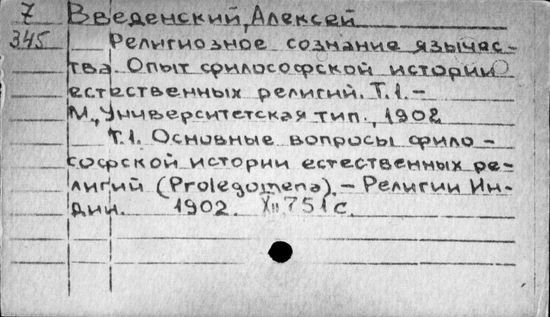 7 Введенский, Алексей
345 Религиозное сознание язычес-
тва. Опыт философской истории
естественных религий. Т.1.-
М., Университетская тип., 1902
Т.1. Основные вопросы фило-
софской истории естественных ре-
лигий (Prolegomena). - Религии Ин-
дии. 1902. XII, 751 с.